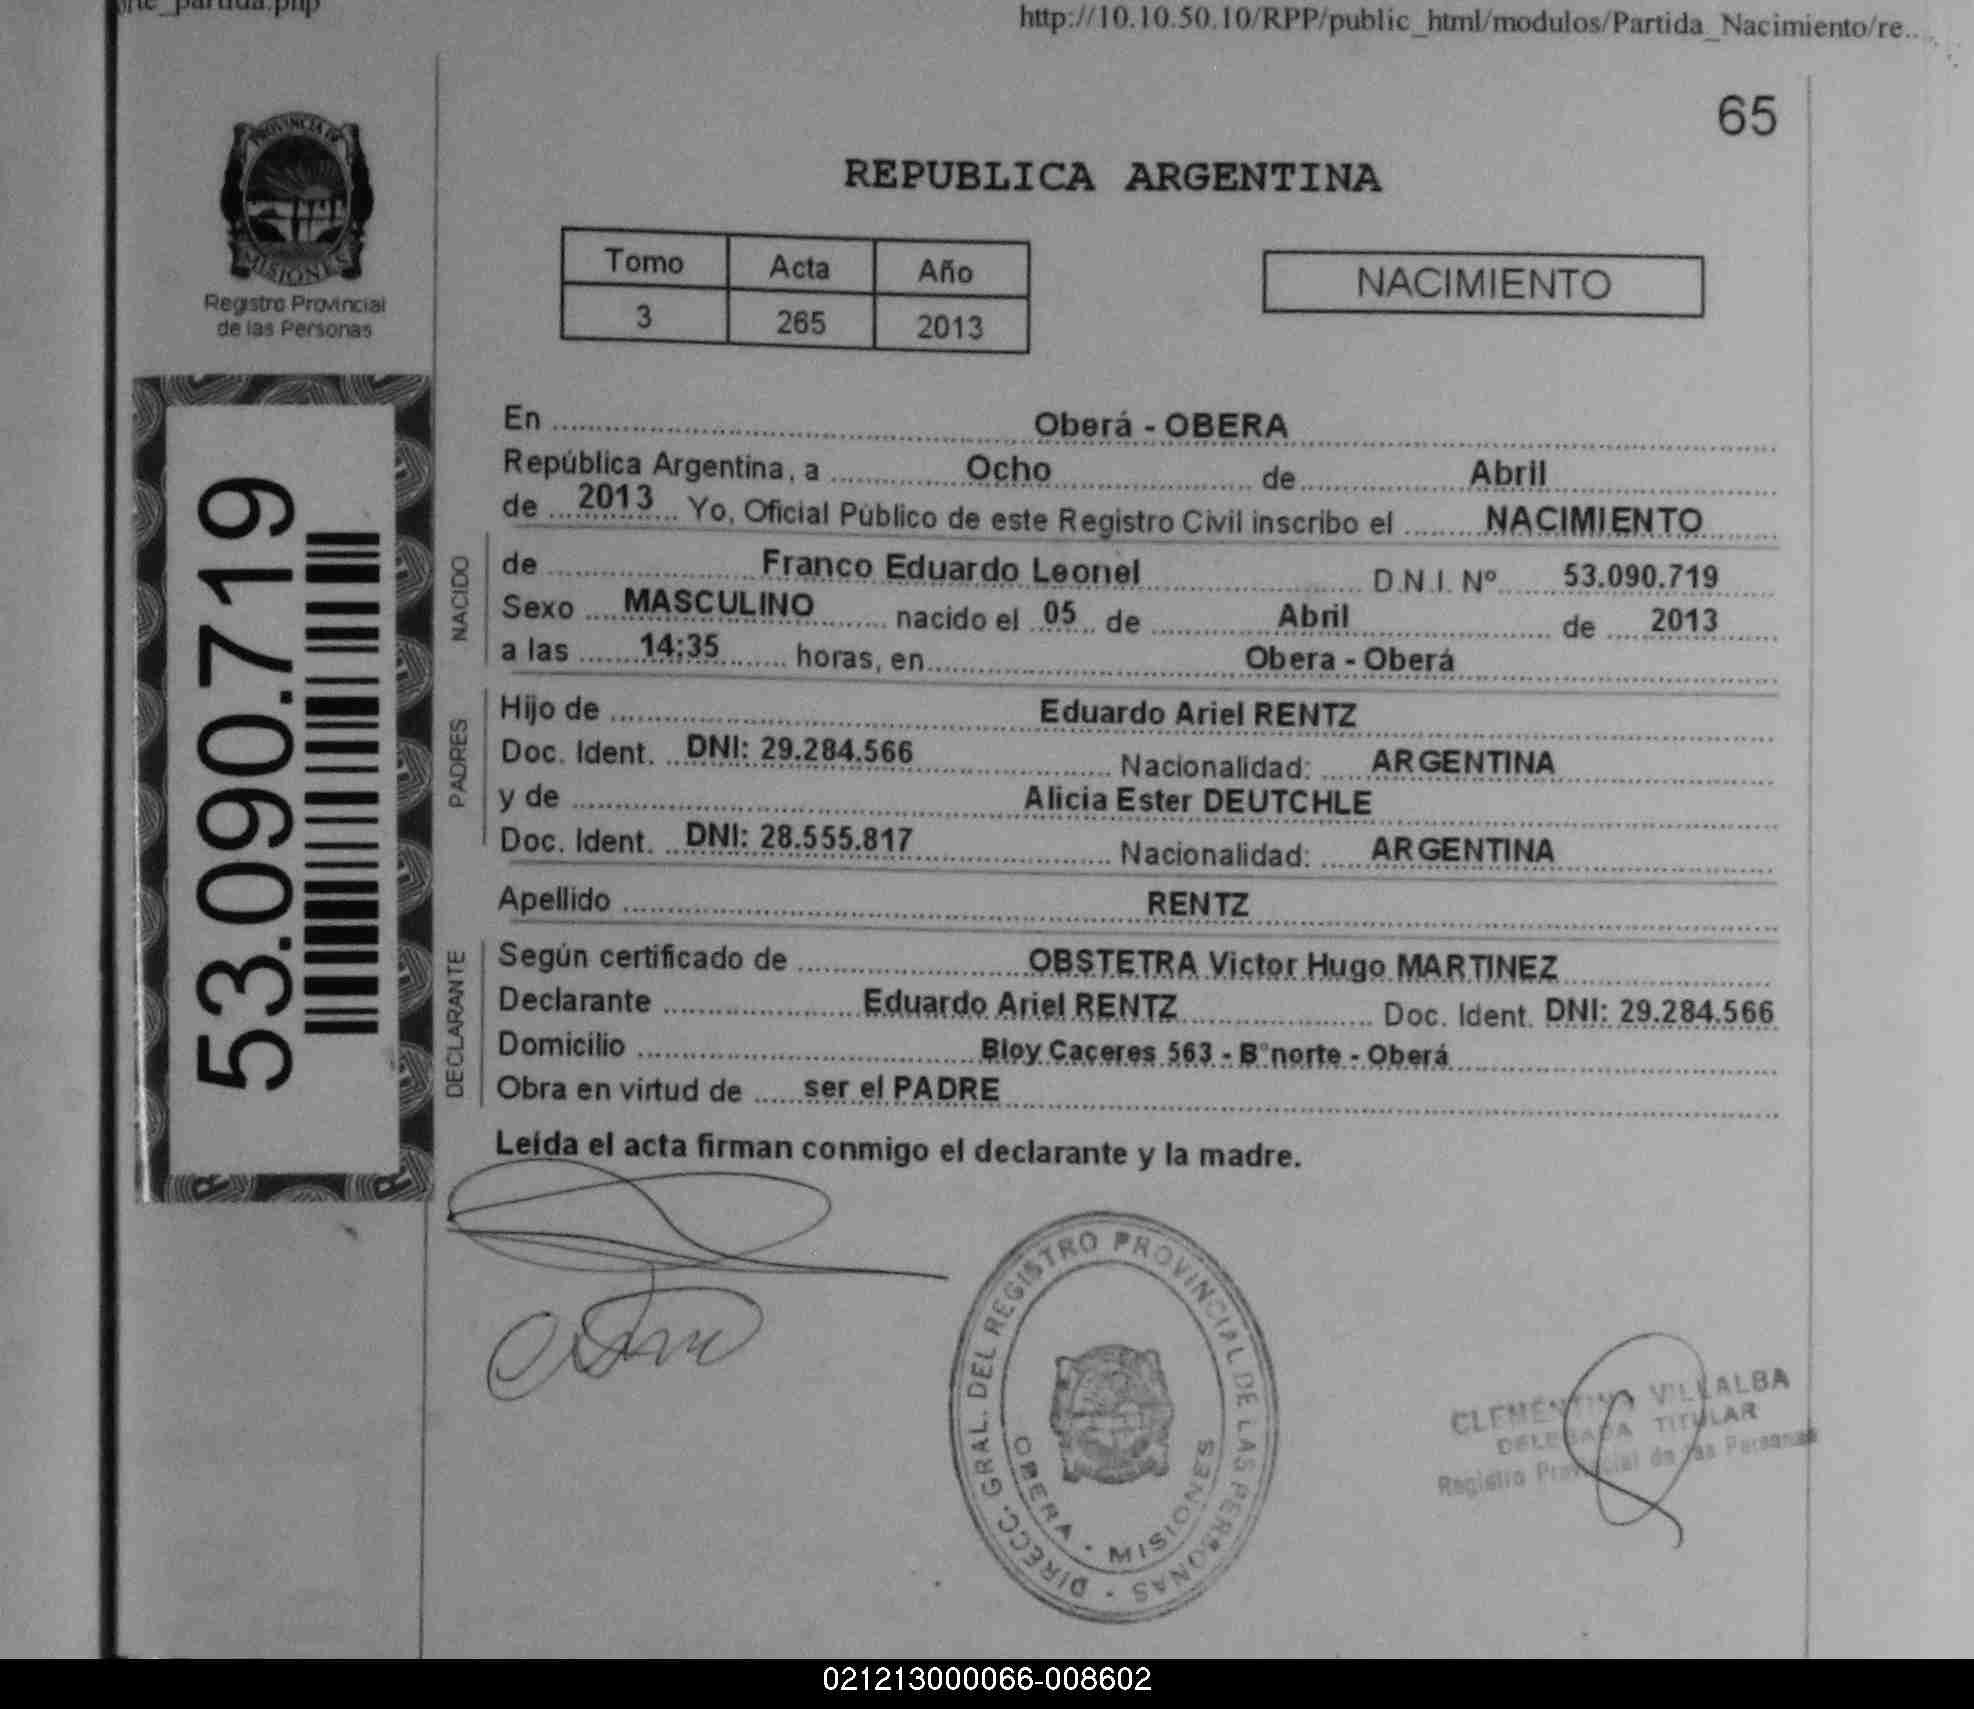 http://10.10.50.10/RPP/public_html/modulos/Partida_Nacimiento/re...
65
PROVINCIA DE
MISIONES
Registro Provincial
de las Personas
REPUBLICA ARGENTINA
Tomo Acta Año
3 265 2013
NACIMIENTO
53.090.719
En Oberá - OBERA
República Argentina, a Ocho de Abril
de 2013 Yo, Oficial Público de este Registro Civil inscribo el NACIMIENTO
NACIDO
de Franco Eduardo Leonel D.N.I. Nº 53.090.719
Sexo MASCULINO nacido el 05 de Abril de 2013
a las 14:35 horas, en Obera - Oberá
PADRES
Hijo de Eduardo Ariel RENTZ
Doc. Ident. DNI: 29.284.566 Nacionalidad: ARGENTINA
y de Alicia Ester DEUTCHLE
Doc. Ident. DNI: 28.555.817 Nacionalidad: ARGENTINA
Apellido RENTZ
DECLARANTE
Según certificado de OBSTETRA Victor Hugo MARTINEZ
Declarante Eduardo Ariel RENTZ Doc. Ident. DNI: 29.284.566
Domicilio Bloy Caceres 563 - B°norte - Oberá
Obra en virtud de ser el PADRE
Leída el acta firman conmigo el declarante y la madre.
DIRECC. GRAL. DEL REGISTRO PROVINCIAL DE LAS PERSONAS -
OBERA - MISIONES
CLEMENTINA VILLALBA
DELEGADA TITULAR
Registro Provincial de las Personas
021213000066-008602